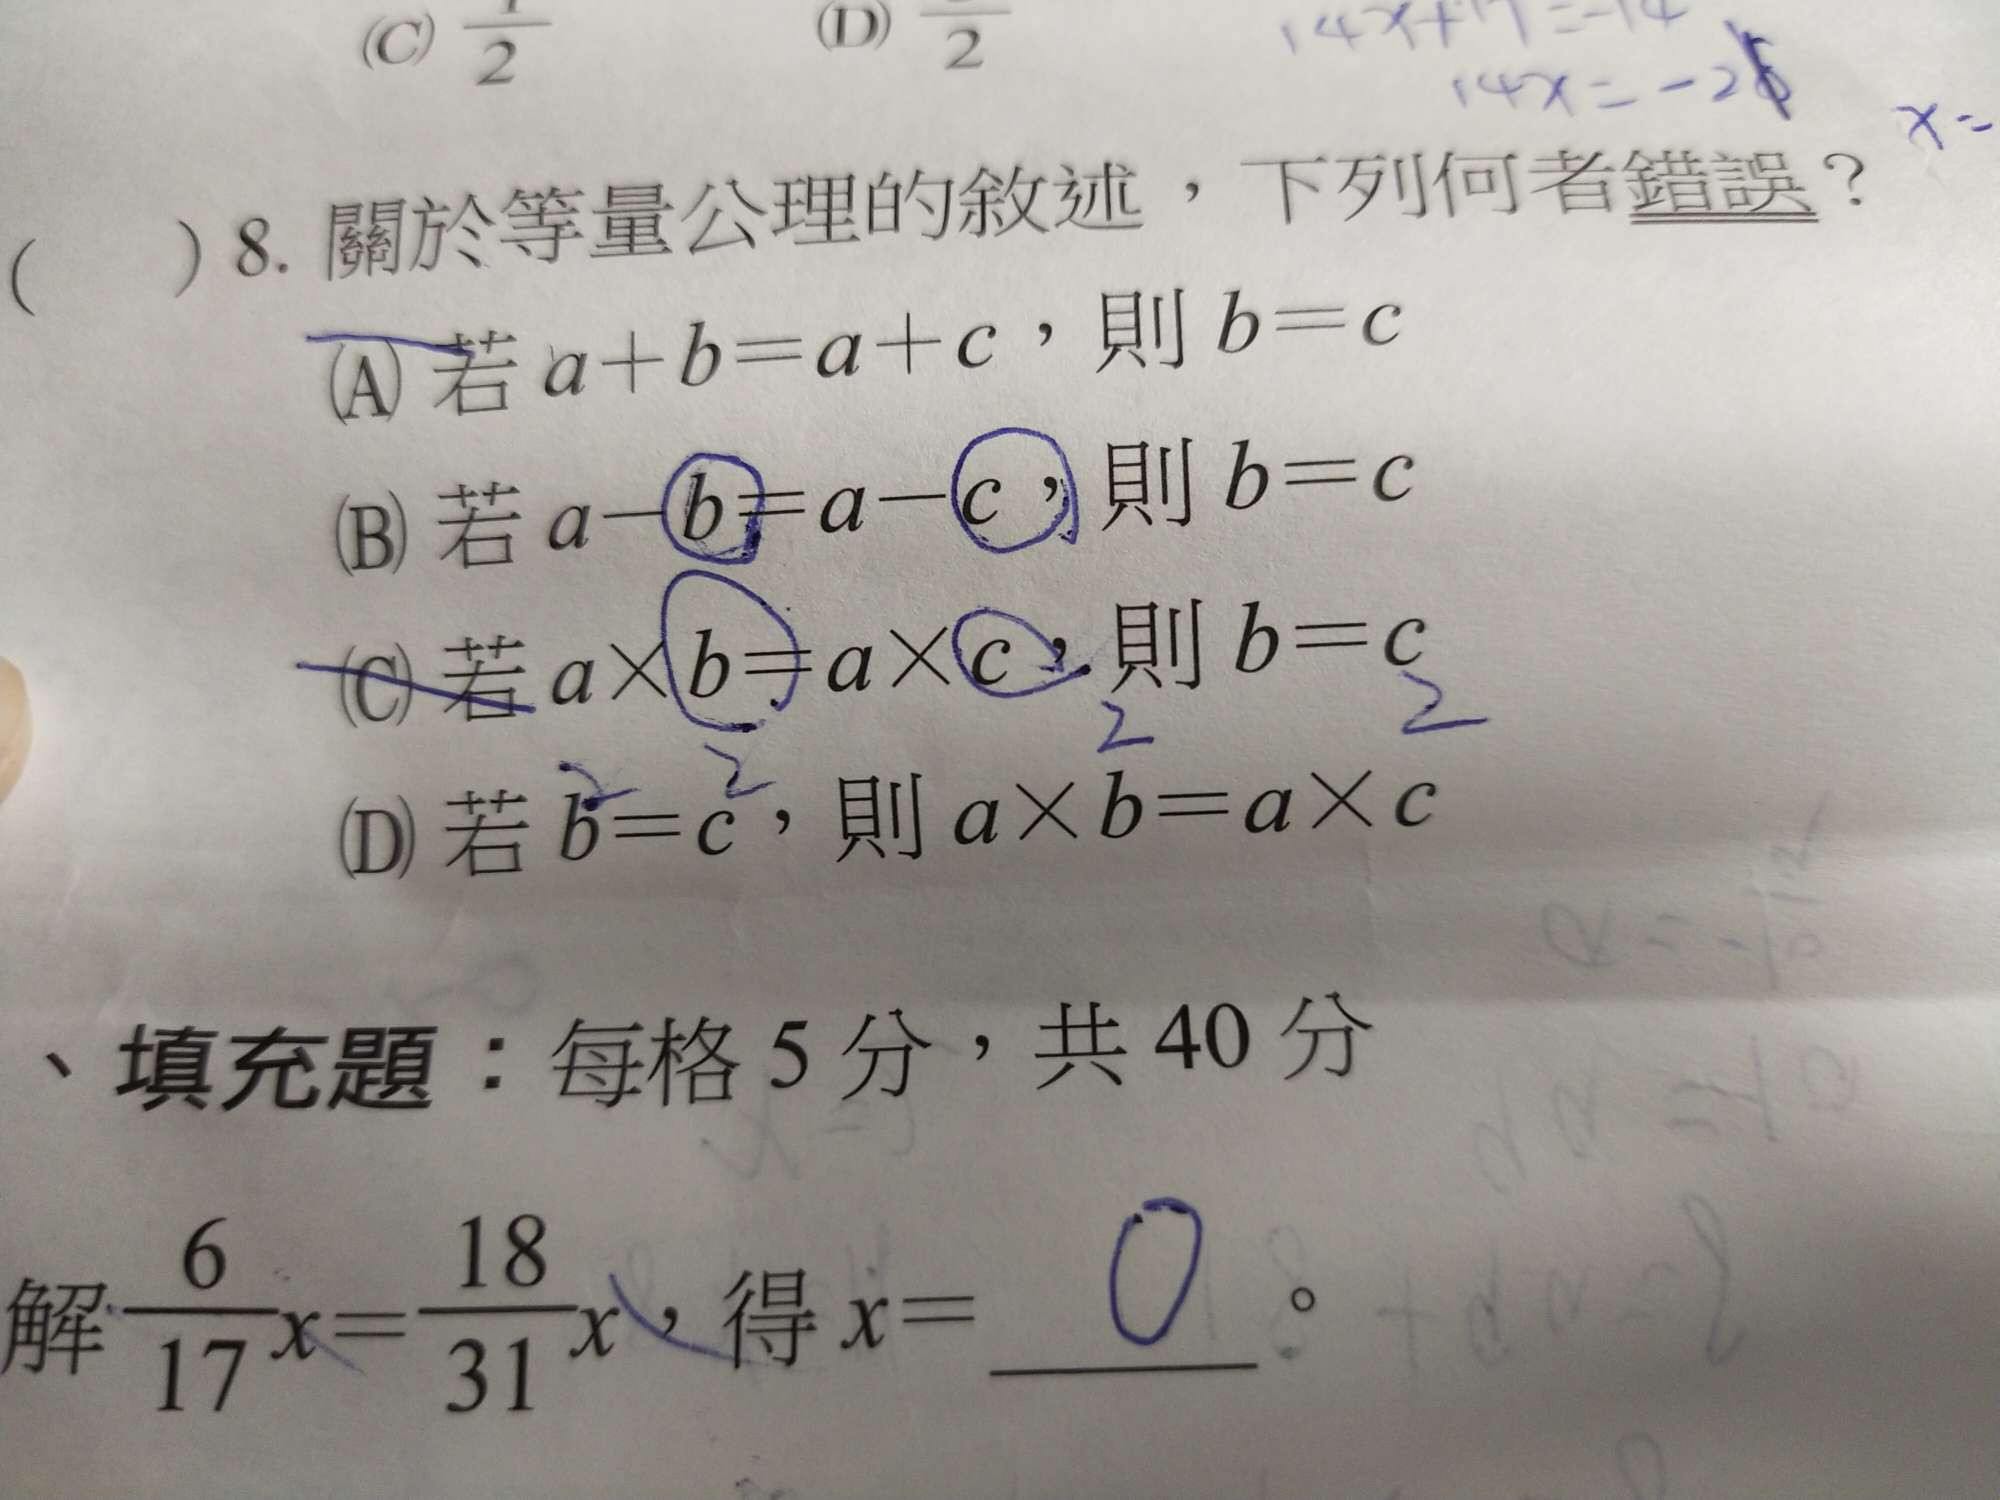 (C) 2 (D) 2
14x+17=-14
14x=-28
x=
( ) 8. 關於等量公理的敘述，下列何者錯誤？
(A) 若 a+b=a+c，則 b=c
(B) 若 a-b=a-c，則 b=c
(C) 若 a×b=a×c，則 b=c
2 2 2 2
(D) 若 b=c，則 a×b=a×c
、填充題：每格 5 分，共 40 分
解 6/17 x= 18/31 x，得 x= 0 。